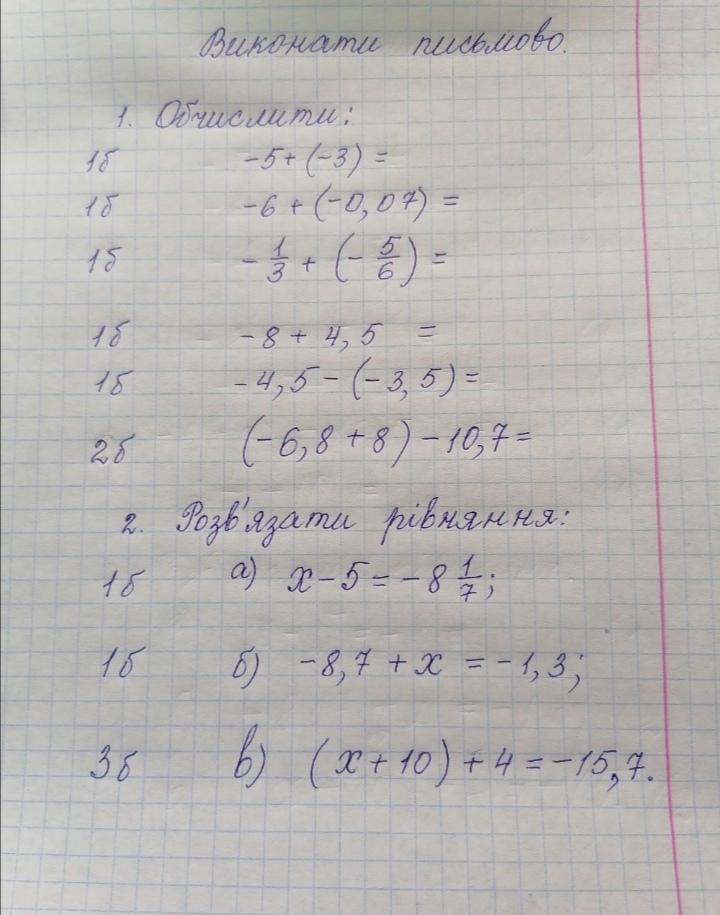 Виконати письмово.
1. Обчислити:
1б -5+(-3)=
1б -6+(-0,07)=
1б -1/3+(-5/6)=
1б -8+4,5 =
1б -4,5-(-3,5)=
2б (-6,8+8)-10,7=
2. Розв'язати рівняння:
1б а) x-5=-8 1/7;
1б б) -8,7+x=-1,3;
3б в) (x+10)+4=-15,7.